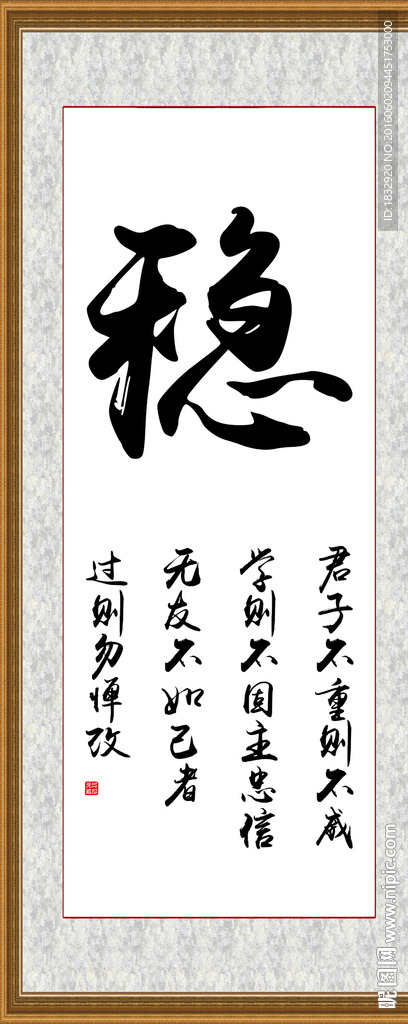 稳
君子不重则不威
学则不固主忠信
无友不如己者
过则勿惮改
ID:1832920 NO:20160602094451753000
昵图网 www.nipic.com